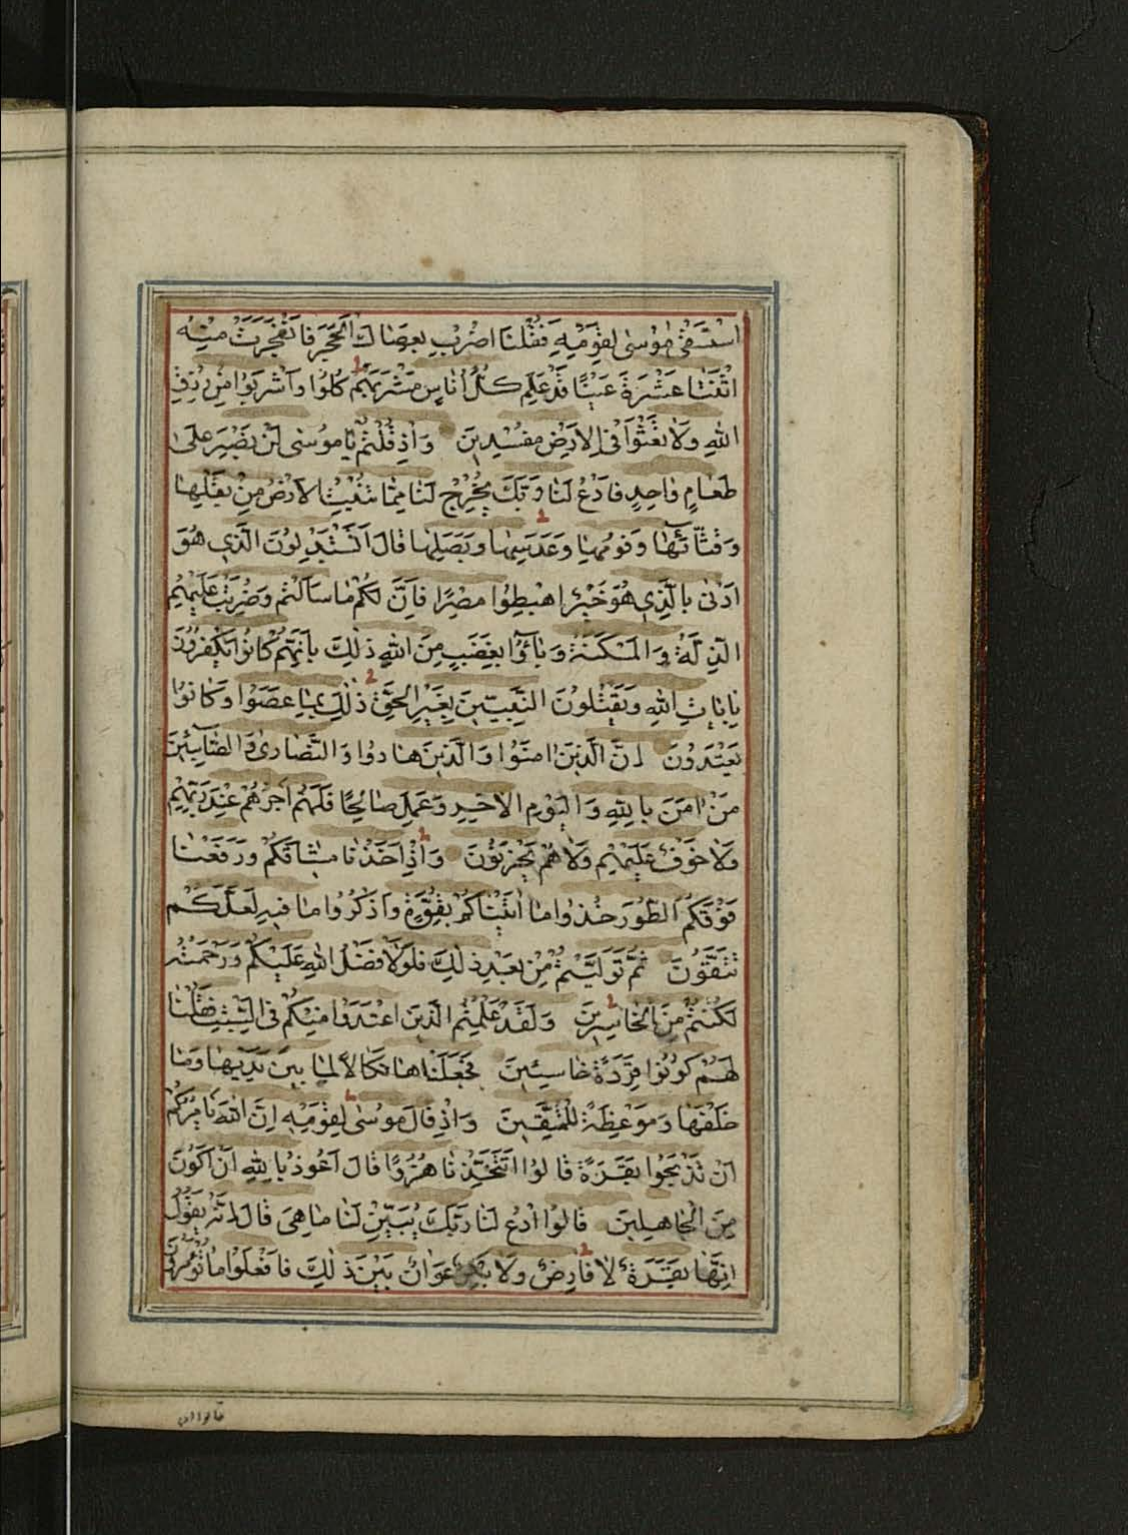 اسْتَسْقٰى مُوْسٰى لِقَوْمِهِ فَقُلْنَا اضْرِبْ بِعَصَاكَ الْحَجَرَ فَانْفَجَرَتْ مِنْهُ
اثْنَتَا عَشْرَةَ عَيْنًا قَدْ عَلِمَ كُلُّ أُنَاسٍ مَشْرَبَهُمْ كُلُوا وَاشْرَبُوا مِنْ رِزْقِ
اللهِ وَلَا تَعْثَوْا فِى الْاَرْضِ مُفْسِدِينَ وَاِذْ قُلْتُمْ يَا مُوسٰى لَنْ نَصْبِرَ عَلٰى
طَعَامٍ وَاحِدٍ فَادْعُ لَنَا رَبَّكَ يُخْرِجْ لَنَا مِمَّا تُنْبِتُ الْاَرْضُ مِنْ بَقْلِهَا
وَقِثَّائِهَا وَفُومِهَا وَعَدَسِهَا وَبَصَلِهَا قَالَ اَتَسْتَبْدِلُونَ الَّذِي هُوَ
اَدْنٰى بِالَّذِي هُوَ خَيْرٌ اهْبِطُوا مِصْرًا فَاِنَّ لَكُمْ مَا سَاَلْتُمْ وَضُرِبَتْ عَلَيْهِمُ
الذِّلَّةُ وَالْمَسْكَنَةُ وَبَآؤُا بِغَضَبٍ مِنَ اللهِ ذٰلِكَ بِاَنَّهُمْ كَانُوا يَكْفُرُونَ
بِاٰيَاتِ اللهِ وَيَقْتُلُونَ النَّبِيِّينَ بِغَيْرِ الْحَقِّ ذٰلِكَ بِمَا عَصَوْا وَكَانُوا
يَعْتَدُونَ اِنَّ الَّذِينَ اٰمَنُوا وَالَّذِينَ هَادُوا وَالنَّصَارٰى وَالصَّابِئِينَ
مَنْ اٰمَنَ بِاللهِ وَالْيَوْمِ الْاٰخِرِ وَعَمِلَ صَالِحًا فَلَهُمْ اَجْرُهُمْ عِنْدَ رَبِّهِمْ
وَلَا خَوْفٌ عَلَيْهِمْ وَلَا هُمْ يَحْزَنُونَ وَاِذْ اَخَذْنَا مِيثَاقَكُمْ وَرَفَعْنَا
فَوْقَكُمُ الطُّورَ خُذُوا مَا اٰتَيْنَاكُمْ بِقُوَّةٍ وَاذْكُرُوا مَا فِيهِ لَعَلَّكُمْ
تَتَّقُونَ ثُمَّ تَوَلَّيْتُمْ مِنْ بَعْدِ ذٰلِكَ فَلَوْلَا فَضْلُ اللهِ عَلَيْكُمْ وَرَحْمَتُهُ
لَكُنْتُمْ مِنَ الْخَاسِرِينَ وَلَقَدْ عَلِمْتُمُ الَّذِينَ اعْتَدَوْا مِنْكُمْ فِى السَّبْتِ فَقُلْنَا
لَهُمْ كُونُوا قِرَدَةً خَاسِئِينَ فَجَعَلْنَاهَا نَكَالًا لِمَا بَيْنَ يَدَيْهَا وَمَا
خَلْفَهَا وَمَوْعِظَةً لِلْمُتَّقِينَ وَاِذْ قَالَ مُوسٰى لِقَوْمِهِ اِنَّ اللهَ يَاْمُرُكُمْ
اَنْ تَذْبَحُوا بَقَرَةً قَالُوا اَتَتَّخِذُنَا هُزُوًا قَالَ اَعُوذُ بِاللهِ اَنْ اَكُونَ
مِنَ الْجَاهِلِينَ قَالُوا ادْعُ لَنَا رَبَّكَ يُبَيِّنْ لَنَا مَا هِىَ قَالَ اِنَّهُ يَقُولُ
اِنَّهَا بَقَرَةٌ لَا فَارِضٌ وَلَا بِكْرٌ عَوَانٌ بَيْنَ ذٰلِكَ فَافْعَلُوا مَا تُؤْمَرُونَ
قالوا ادع